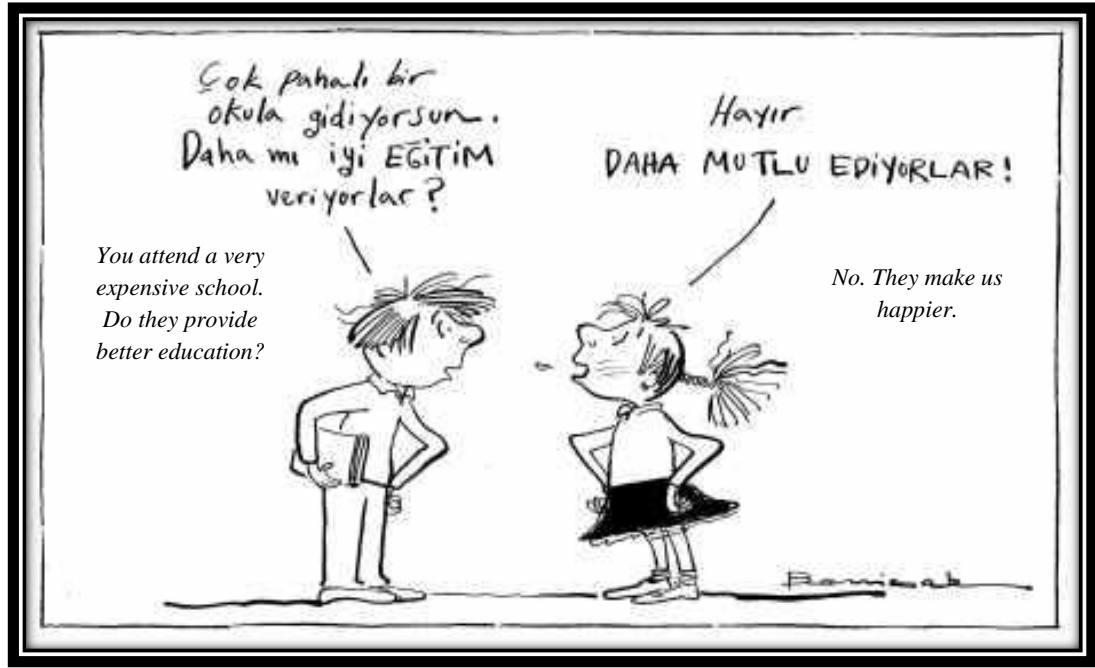 Çok pahalı bir
okula gidiyorsun.
Daha mı iyi EĞİTİM
veriyorlar?
Hayır
DAHA MUTLU EDİYORLAR!
You attend a very
expensive school.
Do they provide
better education?
No. They make us
happier.